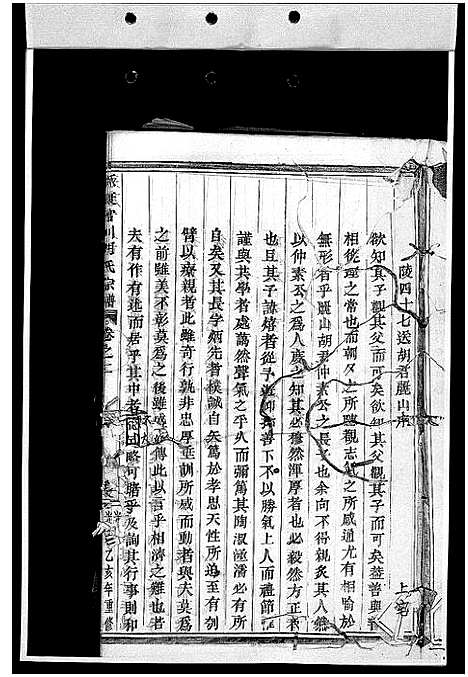 陵四十七送胡君麗山序
欲知其子觀其父而可矣欲知其父觀其子而可矣蓋善與
相從理之常也而朝夕之所聽觀志氣之所感通尤有相喻於
無形者乎麗山胡君仲素公之長子也余向不得親炙其人然
以仲素公之為人度之知其必穆然渾厚者也必毅然方正者
也且其子詩熺者從予遊仰善下不以勝氣上人而禮節
謹與共學者處藹然聲氣之孚久而彌篤其陶淑漸潘必有所
自矣又其長學炳先者樸誠自矢篤於孝思天性所迫至有刲
臂以療親者此雖奇行就非忠厚垂訓所感而動者與夫莫為
之前雖美不彰莫為之後雖盛傳此以言乎相濟之難也者
夫有作有述而居乎其中者略可睹乎及詢其行事則和
氏宗譜
卷之
乙亥年重修